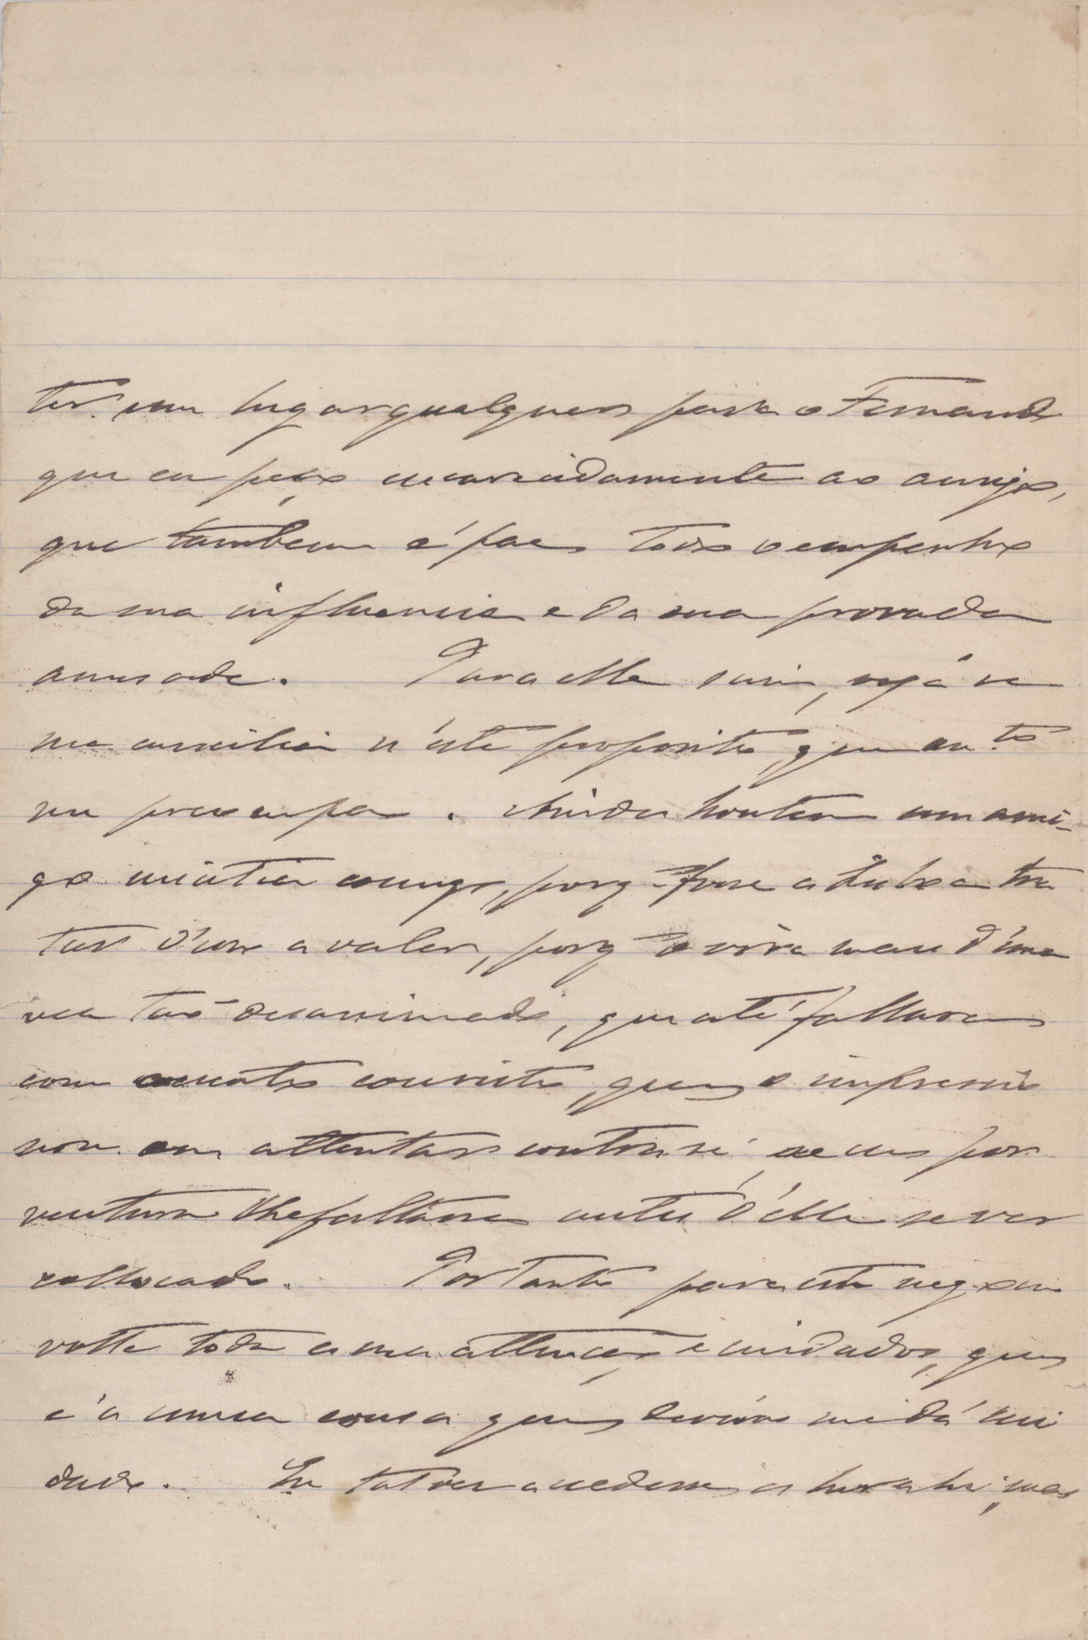 ter um lugar qualquer para o Fernando
que eu peço encarecidamente ao amigo,
que tambem é para todo o empenho
da sua influencia e da sua provada
amisade. Para elle sim, veja se
me auxilia n'este proposito, que tanto
me preoccupa. Ainda hontem um ami-
go insistia commigo, porq fosse a Lisboa tra
tar d'isso a valer, porq o vira mais d'uma
vez tão desanimado, que até fallara
com certo convicto, que o impressio
nou em attentar contra si, se eu por
ventura lhe faltasse antes d'elle se ver
collocado. Portanto para este negocio
volte toda a sua attenção, e cuidados, que
é a unica cousa que deveras me dá cui
dado. Eu talvez accedesse a hora ahi, mas